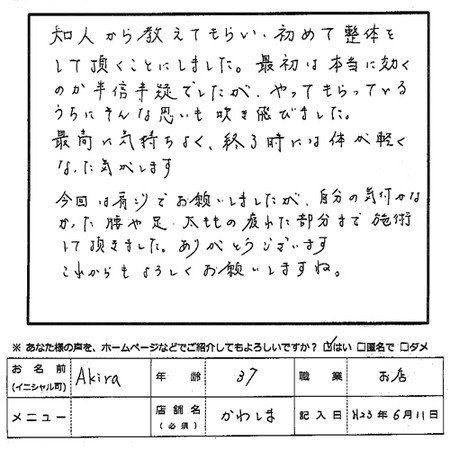 知人から教えてもらい、初めて整体を
して頂くことにしました。最初は本当に効く
のか半信半疑でしたが、やってもらっている
うちにそんな思いも吹き飛びました。
最高に気持ちよく、終る時には体が軽く
なった気がします
今回は肩コリでお願いしましたが、自分の気付かな
かった腰や足・太ももの疲れた部分まで施術
して頂きました。ありがとうございます
これからもよろしくお願いしますね。
※ あなた様の声を、ホームページなどでご紹介してもよろしいですか？ ☑はい □匿名で □ダメ
お名前 (イニシャル可) Akira 年齢 37 職業 お店
メニュー 店舗名 (必須) かわしま 記入日 H23年6月11日